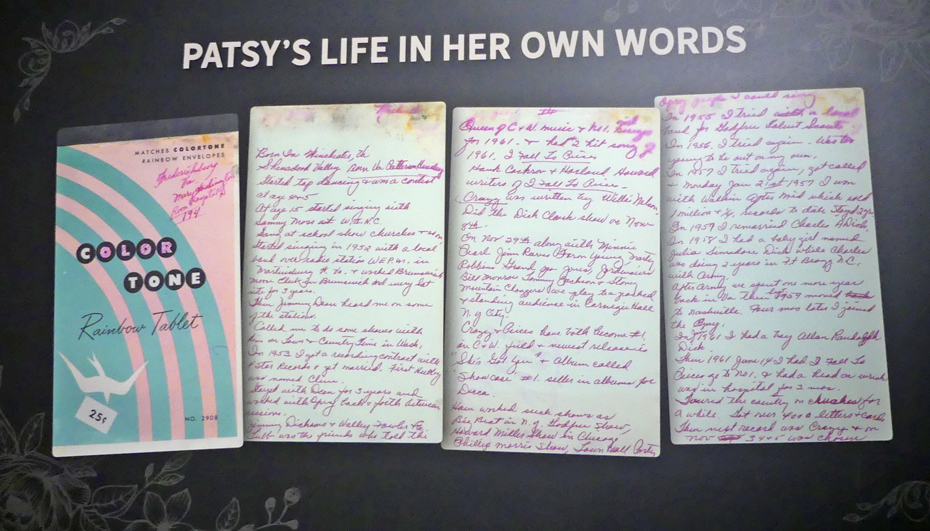 PATSY'S LIFE IN HER OWN WORDS
MATCHES COLORTONE
RAINBOW ENVELOPES
Fredericksburg
Va
Mary Washington
Hospital
Rm
194
COLOR
TONE
Rainbow Tablet
25¢
NO. 2908
Born In Winchester, Va
Shenandoah Valley. Born Va Patterson Hensley
Started tap dancing & won a contest
at age
At age 15 started singing with
Sammy Moss at W.I.N.C.
Sang at school show churches &
Started singing in 1952 with a local
band over radio station W.E.P.M. in
Martinsburg W. Va. & worked Brunswick
Moose Club in Brunswick and
for 3 years.
Then Jimmy Dean heard me on some
of the stations.
Called me to do some shows with
him on Town & Country Time in Wash.
In 1953 I got a recording contract with
4 Star Records & got married. First Hubby
was named Cline.
Stayed with them for 3 years and
worked with back & forth between
sessions.
Jimmy Dickens & Wally Fowler & E.
Tubb was the friends who told the
Queen of C & W music & No 1.
for 1961. & had 2 hit song
1961. I Fall To Pieces
Hank Cochran & Harland Howard
writers of I Fall To Pieces
Crazy was written by Willie Nelson.
Did the Dick Clark show on Nov
8th.
On Nov 29th along with Minnie
Pearl, Jim Reeves Faron Young, Marty
Robbins Grandpa Jones, Jordanaires
Bill Monroe Tommy Jackson & Stony
Mountain Cloggers we play to a packed
& standing audience in Carnegie Hall
N.Y City.
Crazy & Pieces have both become #1.
in C & W field & newest release is
"She's Got You" & Album called
"Showcase" #1 seller in albums for
Decca.
Have worked such shows as
Big Beat in N.Y. Godfrey Show,
Howard Miller Show in Chicago
Phillip Morris Show, Town Hall Party
Opry people I could sing.
In 1955 I tried with a local
band for Godfrey Talent Scouts
In 1956. I tried again. Was
going to be out on my own.
In 1957 I tried again, got called
& Monday Jan 21st 1957 I won
with Walkin After Mid which sold
1 million records to date.
In 1957 I remarried Charles A Dick
In 1958 I had a baby girl named
Julia Simadore Dick while Charles
was doing 2 years in Ft Bragg N.C.
with Army.
After Army we spent one more year
back in Va. then 1959 moved
to Nashville. Four mos later I joined
the Opry.
In 1961 I had a boy Allan Randolph
Dick
Then 1961 June 14 I had I Fall To
Pieces go to No 1. & had a head on wreck
was in hospital for 3 mos.
Toured the country on crutches for
a while. Got over letters & cards
Then next record was Crazy & on
Nov 3 4 & 5 was chosen